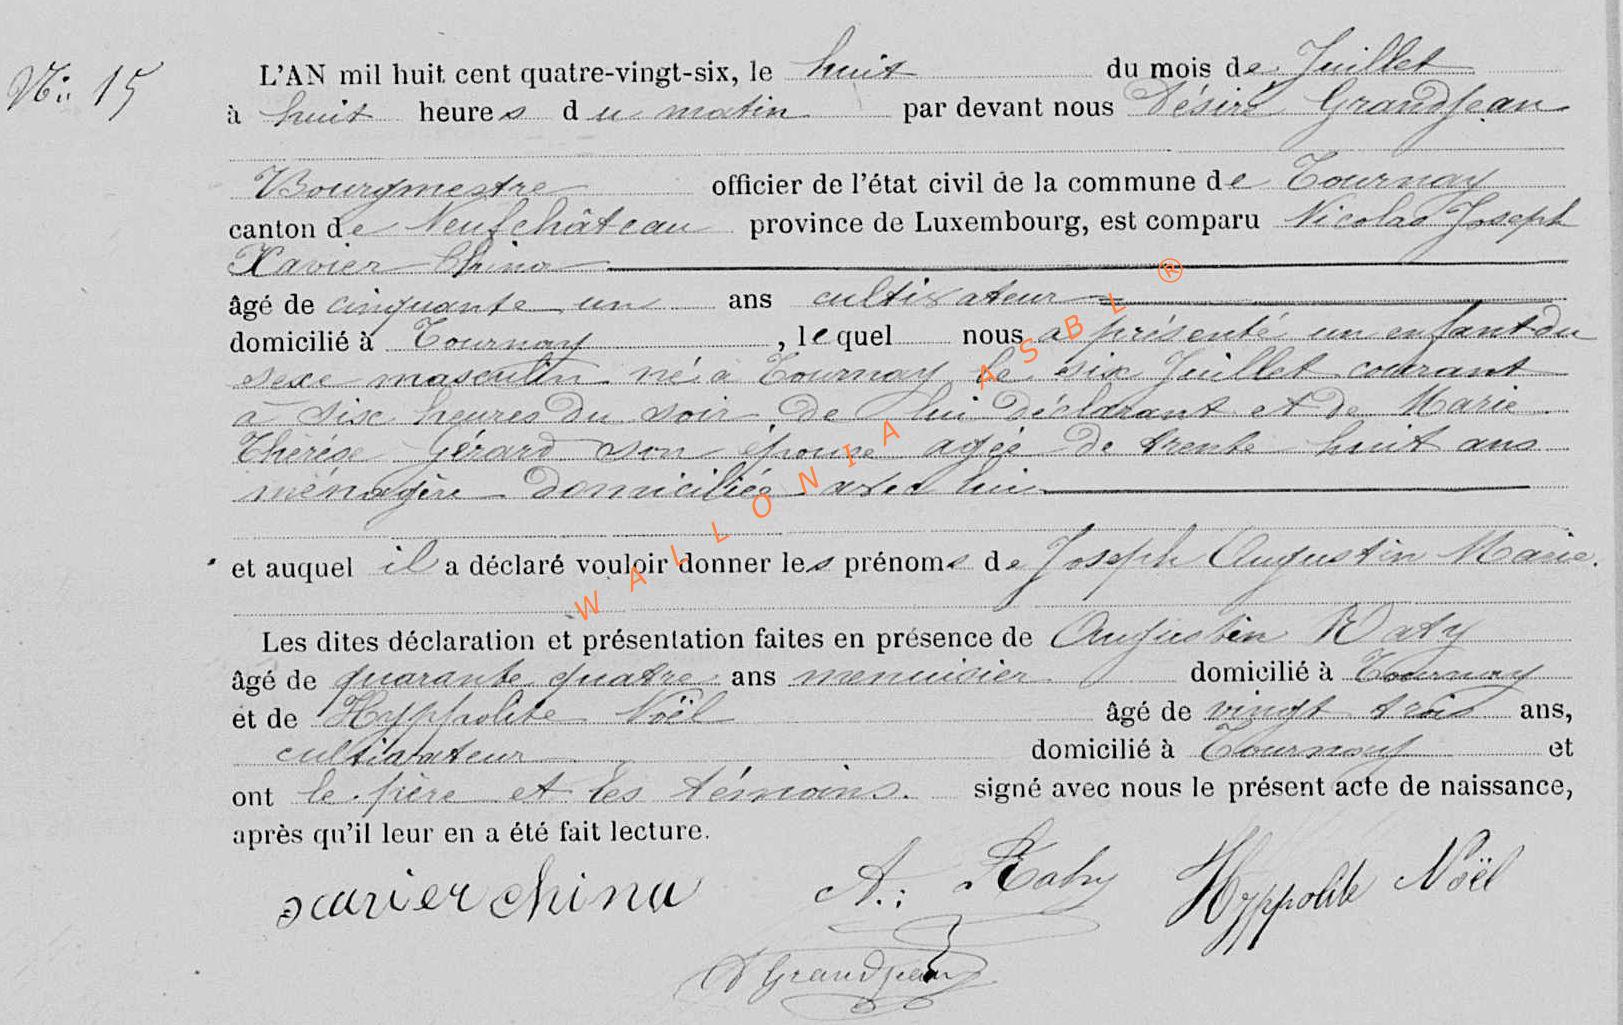 N° 15
L'AN mil huit cent quatre-vingt-six, le huit du mois de Juillet
à huit heures du matin par devant nous Désiré Grandjean
Bourgmestre officier de l'état civil de la commune de Tournay
canton de Neufchâteau province de Luxembourg, est comparu Nicolas Joseph
Xavier China
âgé de cinquante un ans cultivateur
domicilié à Tournay, lequel nous a présenté un enfant du
sexe masculin né à Tournay le six Juillet courant
à six heures du soir de lui déclarant et de Marie
Thérése Gérard son épouse agée de trente huit ans
ménagère domiciliée avec lui
et auquel il a déclaré vouloir donner les prénoms de Joseph Augustin Marie.
Les dites déclaration et présentation faites en présence de Augustin Raty
âgé de quarante quatre ans menuisier domicilié à Tournay
et de Hyppolite Noël âgé de vingt trois ans,
cultivateur domicilié à Tournay et
ont le père et les témoins. signé avec nous le présent acte de naissance,
après qu'il leur en a été fait lecture.
xavier china A. Raty Hyppolite Noël
D Grandjean
WALLONIA ASBL ®